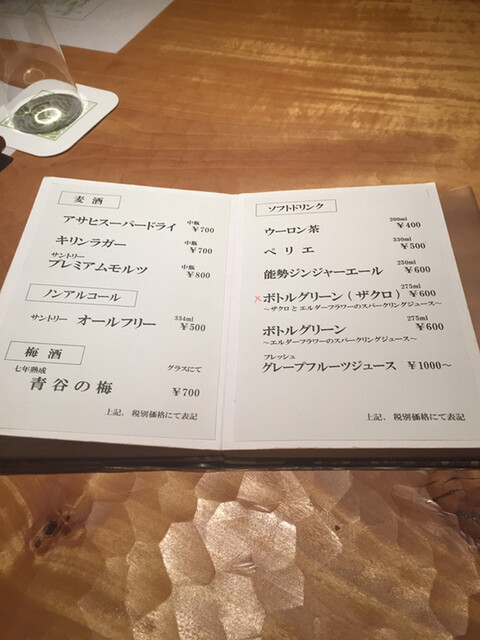 麦酒
アサヒスーパードライ 中瓶 ¥700
キリンラガー 中瓶 ¥700
サントリー
プレミアムモルツ 中瓶 ¥800
ノンアルコール
サントリー オールフリー 334ml ¥500
梅酒
七年熟成 グラスにて
青谷の梅 ¥700
上記、税別価格にて表記
ソフトドリンク
ウーロン茶 200ml ¥400
ペリエ 330ml ¥500
能勢ジンジャーエール 250ml ¥600
×ボトルグリーン(ザクロ) 275ml ¥600
〜ザクロとエルダーフラワーのスパークリングジュース〜
ボトルグリーン 275ml ¥600
〜エルダーフラワーのスパークリングジュース〜
フレッシュ
グレープフルーツジュース ¥1000〜
上記、税別価格にて表記